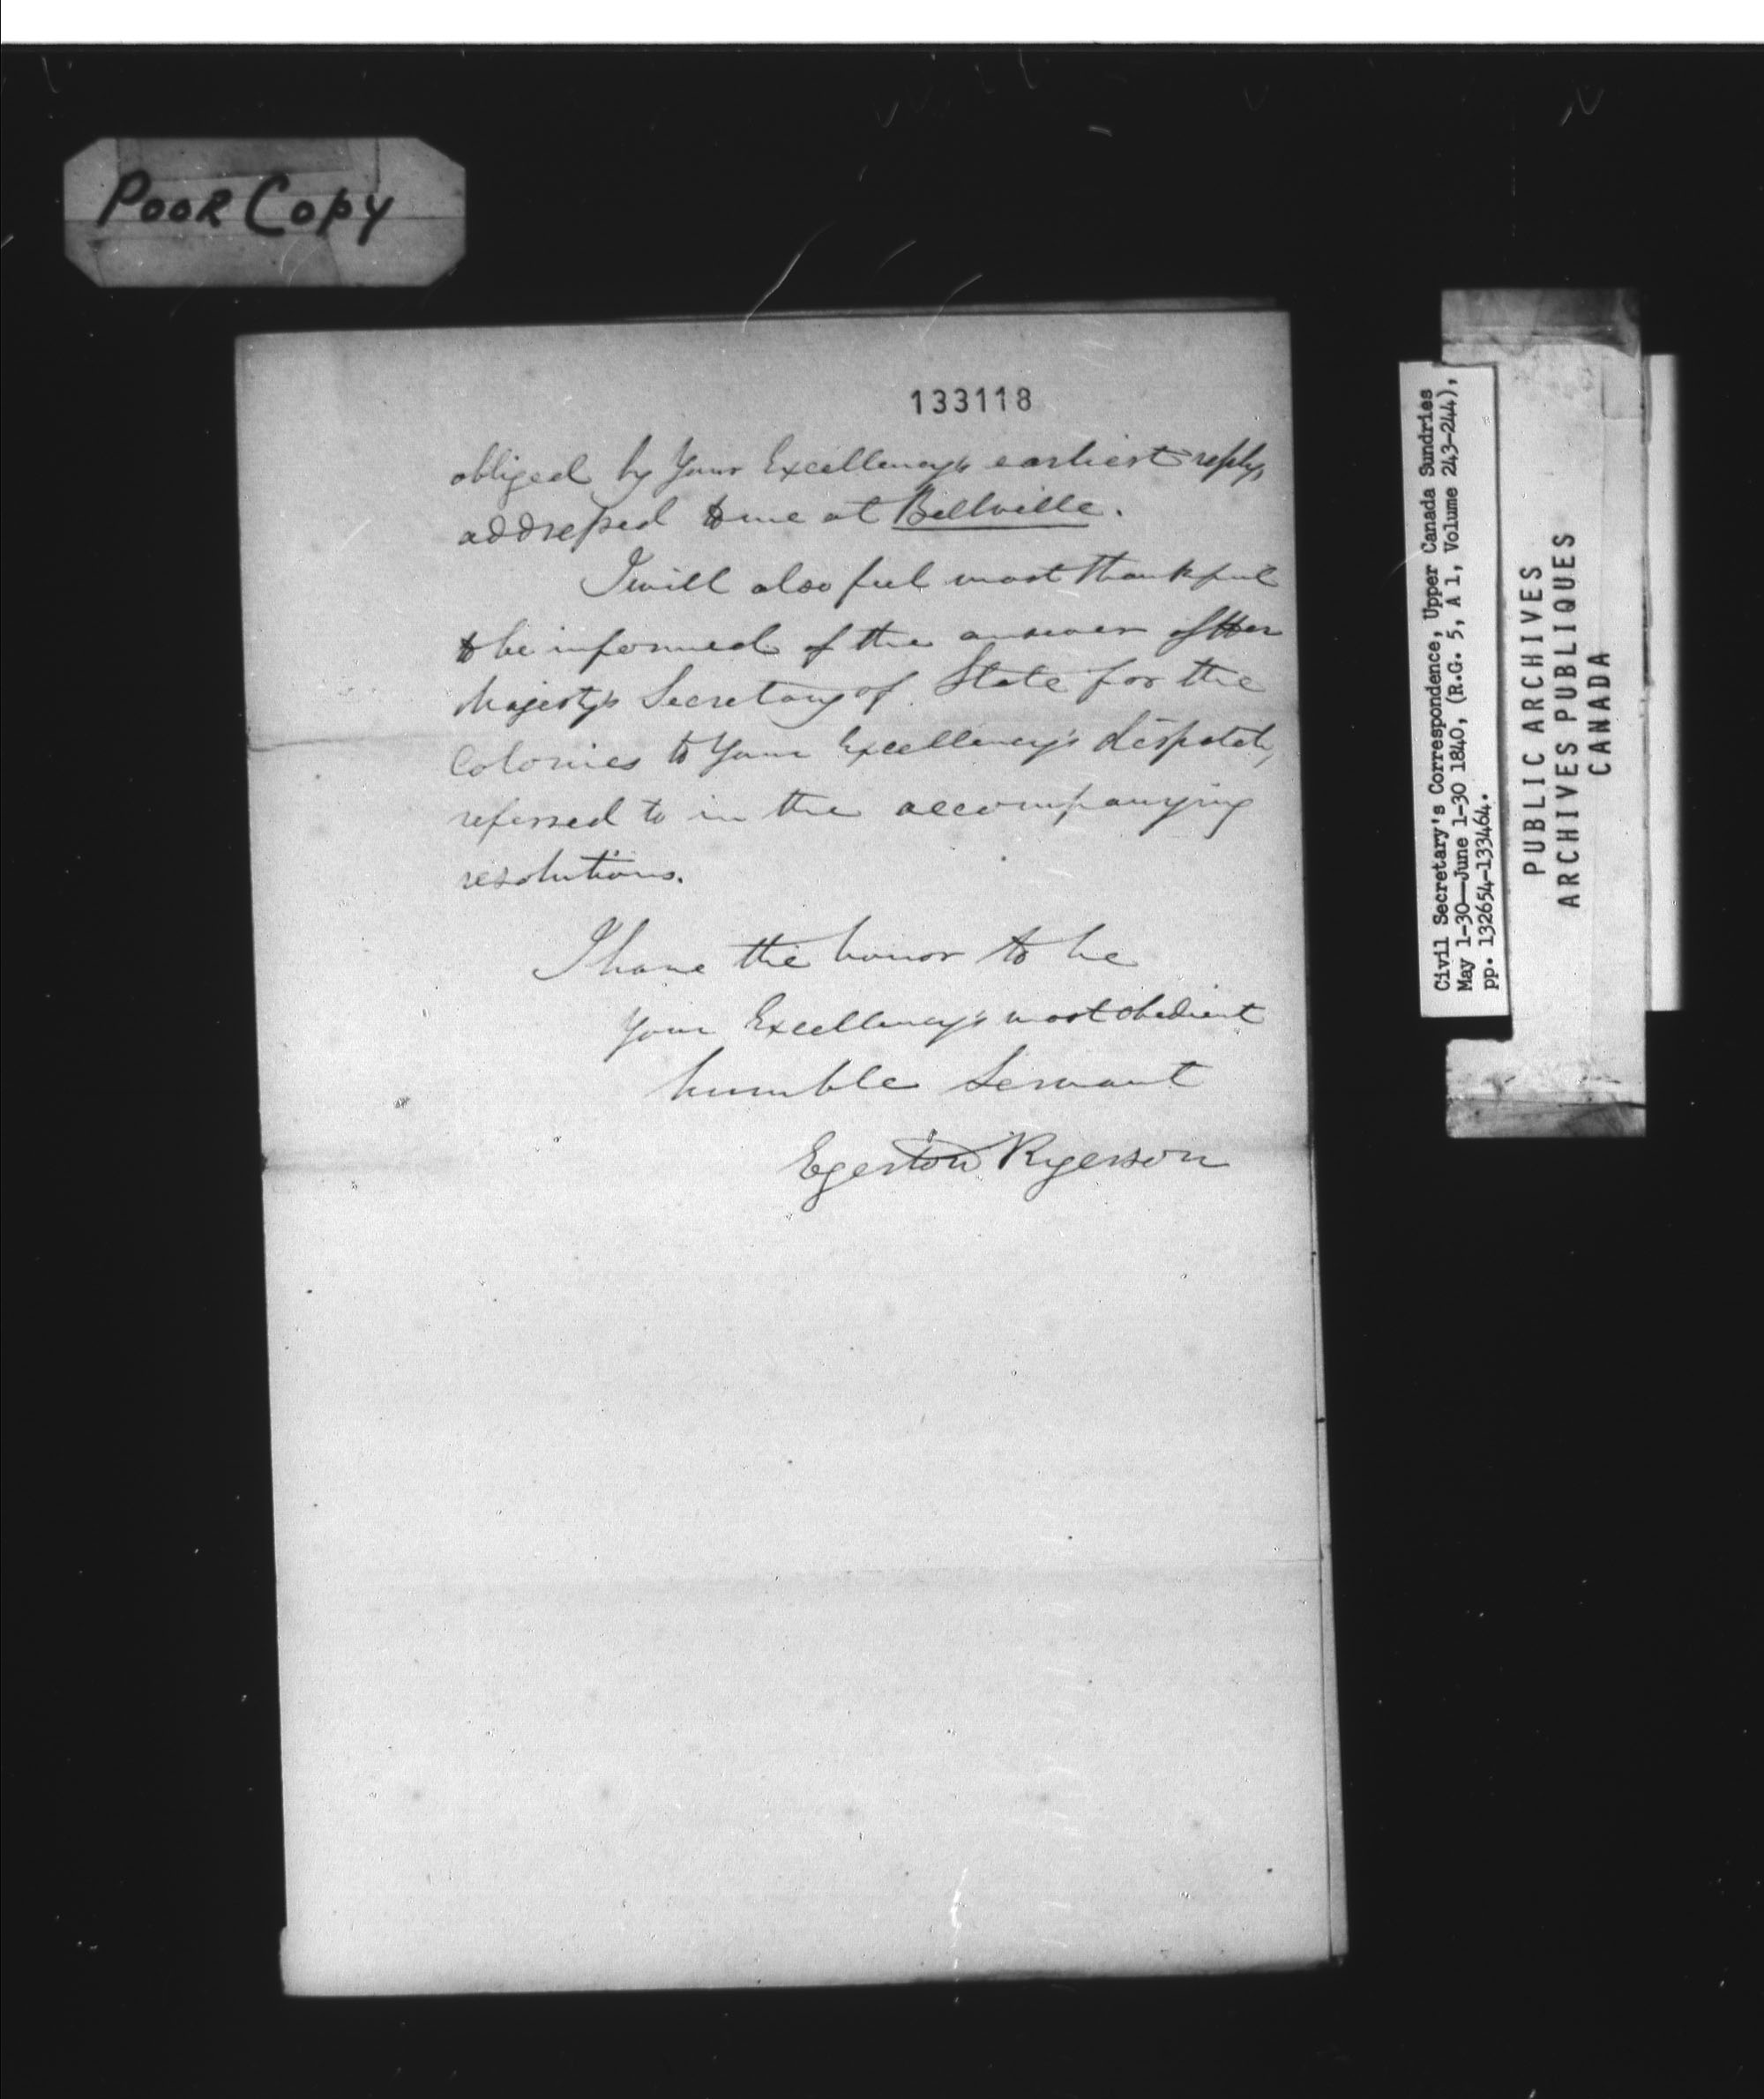 POOR COPY
133118
obliged by Your Excellency's earliest reply,
addressed to me at Bellville.
I will also feel most thankful
to be informed of the answer of Her
Majesty's Secretary of State for the
Colonies to Your Excellency's dispatch,
referred to in the accompanying
resolutions.
I have the honor to be
Your Excellency's most obedient
humble Servant
Egerton Ryerson
Civil Secretary's Correspondence, Upper Canada Sundries
May 1-30—June 1-30 1840, (R.G. 5, A 1, Volume 243-244),
pp. 132654-133464.
PUBLIC ARCHIVES
ARCHIVES PUBLIQUES
CANADA